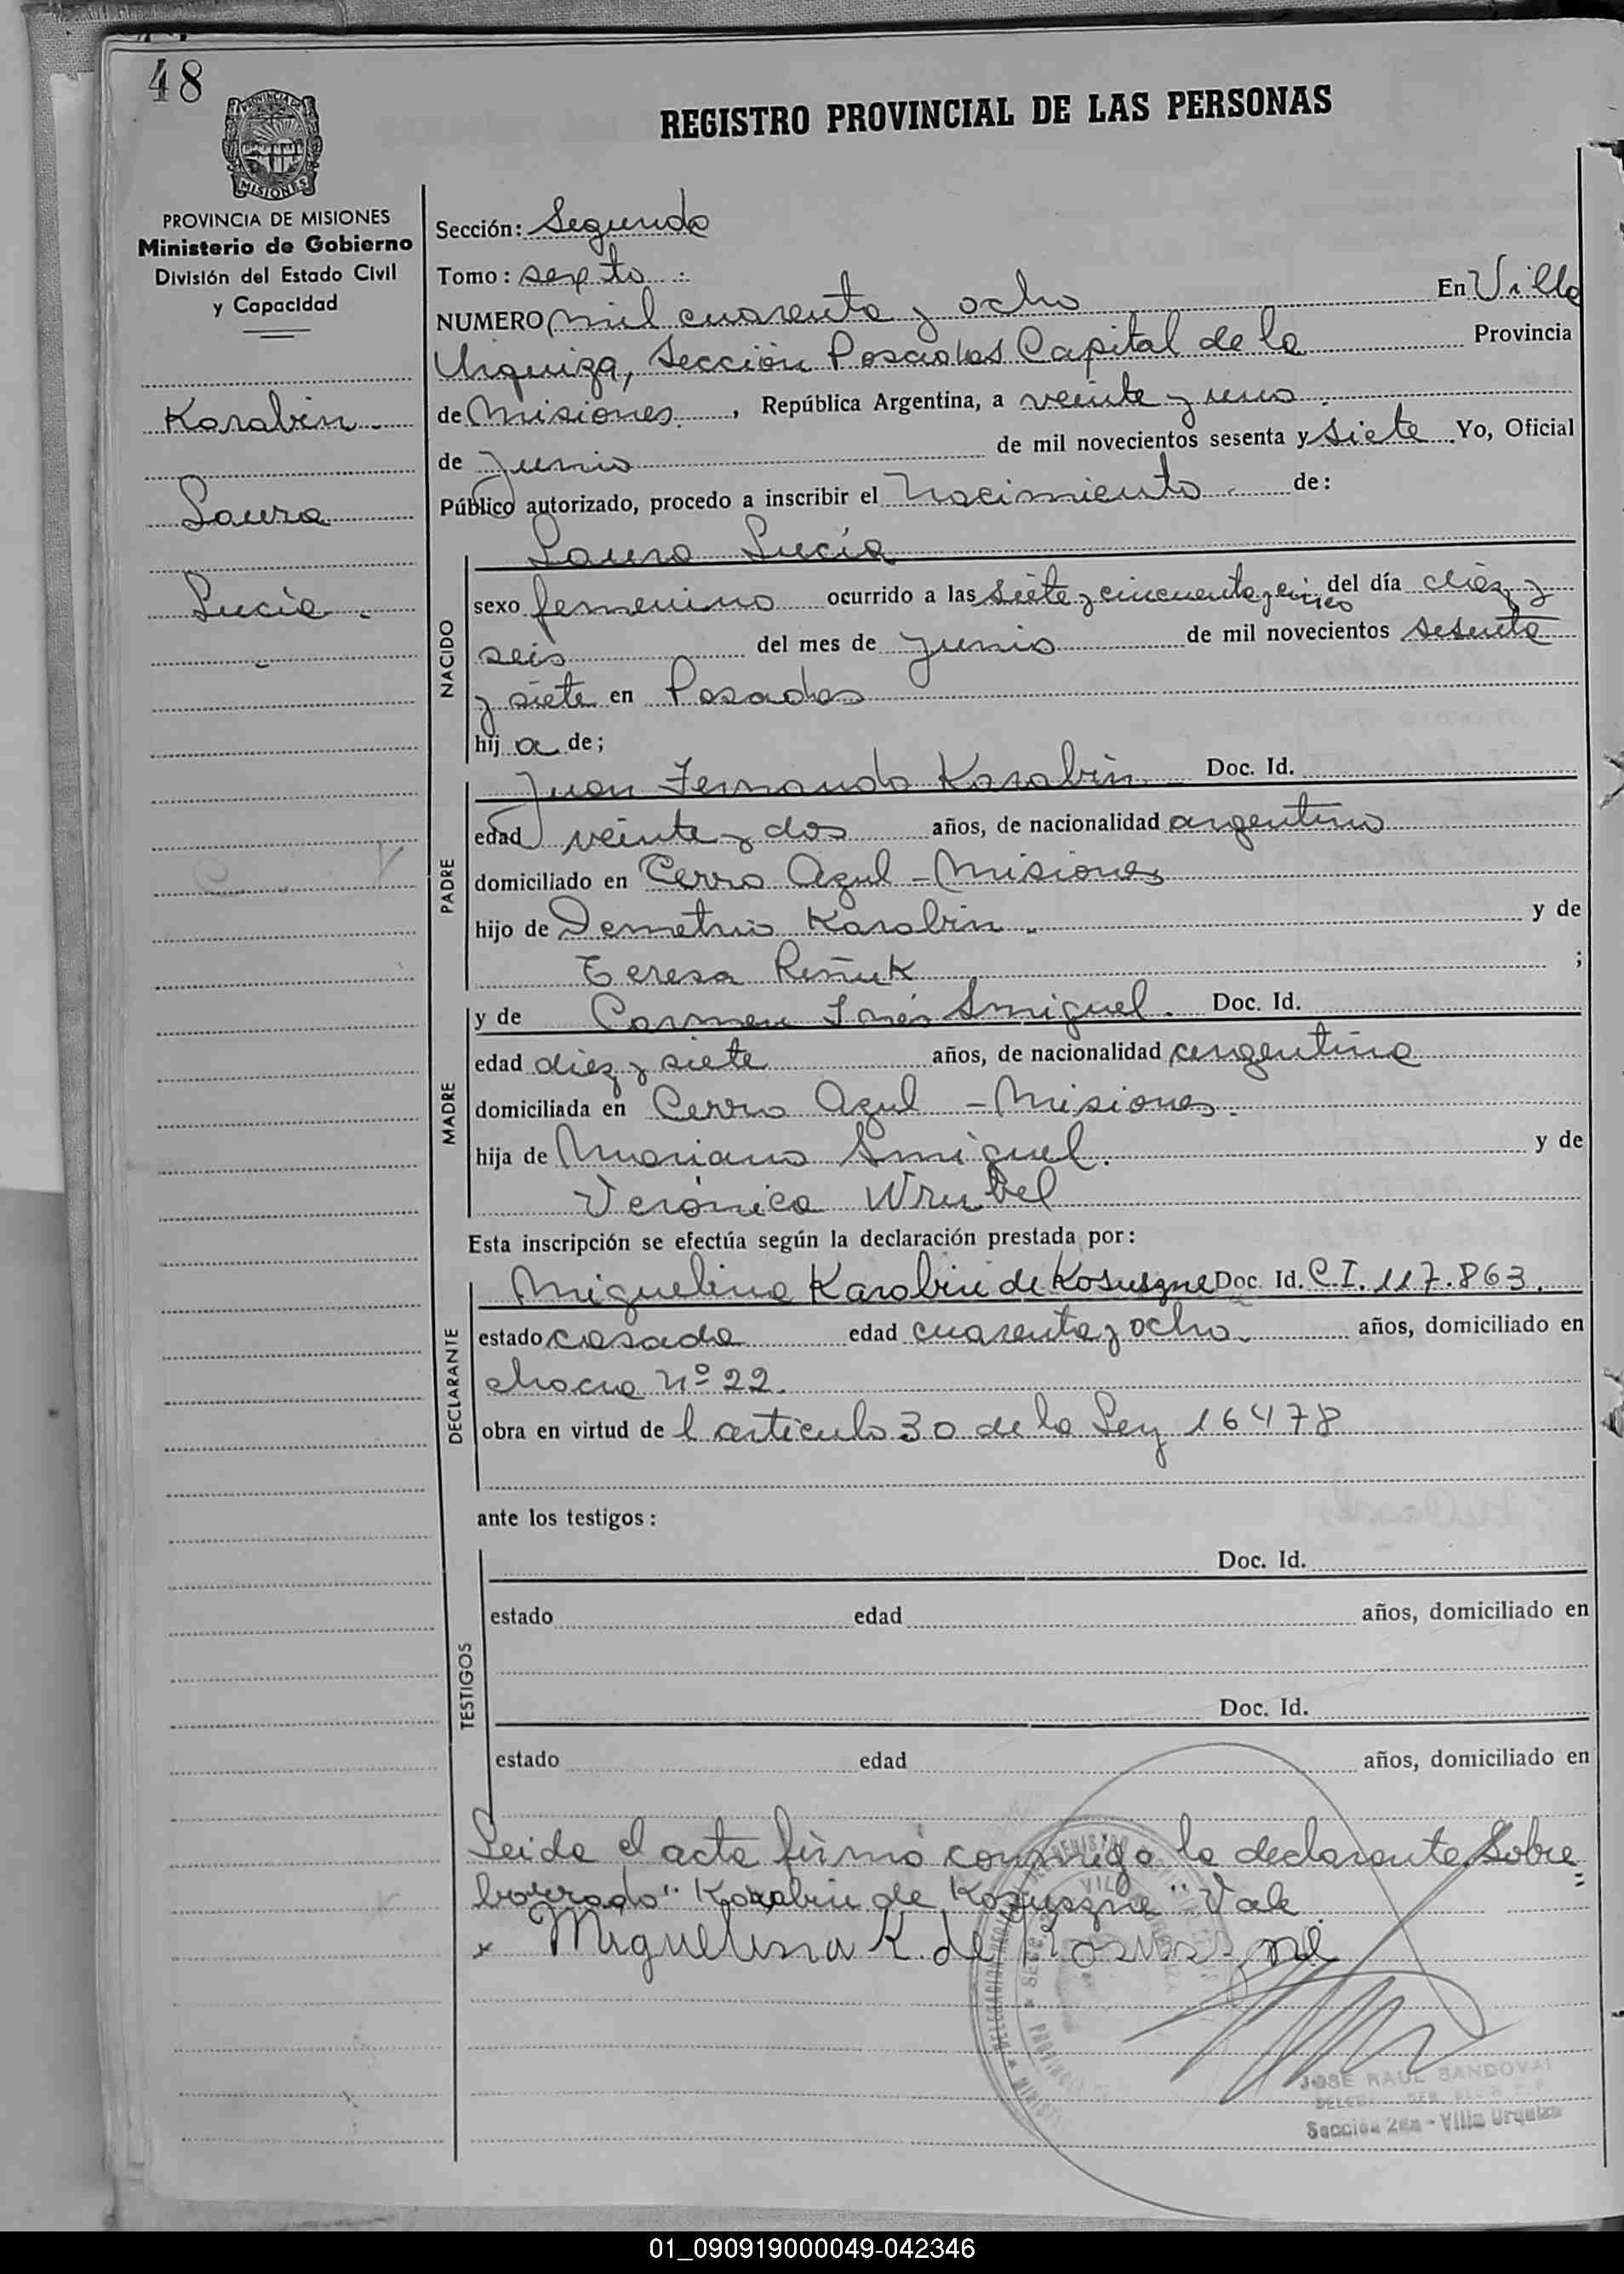 48
PROVINCIA DE
MISIONES
REGISTRO PROVINCIAL DE LAS PERSONAS
PROVINCIA DE MISIONES
Ministerio de Gobierno
División del Estado Civil
y Capacidad
Karabin.-
Laura
Lucía.-
Sección: Segunda
Tomo: sexto.-
NUMERO mil cuarenta y ocho En Villa
Urquiza, Sección Posadas Capital de la Provincia
de Misiones, República Argentina, a veinte y uno.
de Junio de mil novecientos sesenta y siete Yo, Oficial
Público autorizado, procedo a inscribir el Nacimiento de:
Laura Lucía
NACIDO
sexo femenino ocurrido a las siete y cincuenta y cinco del día diez y
seis del mes de junio de mil novecientos sesenta
y siete en Posadas
hij a de;
PADRE
Juan Fernando Karabin Doc. Id.
edad veinte y dos años, de nacionalidad argentino
domiciliado en Cerro Azul - Misiones
hijo de Demetrio Karabin.- y de
Teresa ;
MADRE
y de Carmen Inés Smiguel. Doc. Id.
edad diez y siete años, de nacionalidad argentina
domiciliada en Cerro Azul - Misiones.
hija de Mariano Smiguel. y de
Verónica Wrubel
Esta inscripción se efectúa según la declaración prestada por:
DECLARANTE
Miguelina Karabin de Kosuszne Doc. Id. C.I. 117.863.
estado casada edad cuarenta y ocho. años, domiciliado en
chacra nº 22.
obra en virtud de l artículo 30 de la Ley 16478
ante los testigos:
TESTIGOS
Doc. Id.
estado edad años, domiciliado en
Doc. Id.
estado edad años, domiciliado en
Leida el acta firmó conmigo la declarante. Sobre
borrado "Karabin de Kozuszne" Vale.
x Miguelina K. de
JOSE RAUL SANDOVAL
Sección 2da - Villa Urquiza
01_090919000049-042346